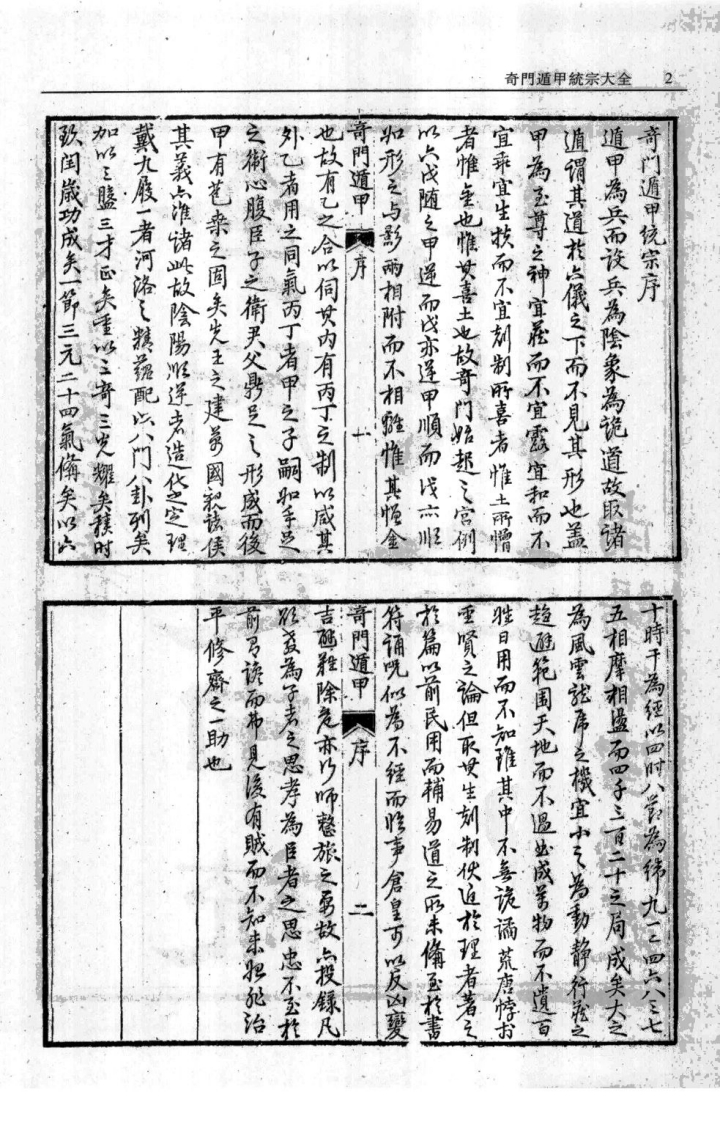 奇門遁甲統宗大全 2
奇門遁甲統宗序
遁甲為兵而設兵為陰象為詭道故取諸
遁謂其道於六儀之下而不見其形也蓋
甲為至尊之神宜藏而不宜露宜和而不
宜乖宜生扶而不宜刻制所喜者惟土所憎
者惟金也惟其喜土也故奇門始起之宮例
以六戊隨之甲逆而戊亦逆甲順而戊亦順
如形之与影兩相附而不相離惟其恆金
奇門遁甲 序 一
也故有乙之合以伺其內有丙丁之制以威其
外乙者用之同氣丙丁者甲之子嗣如手足
之衛心腹臣子之衛君父鼎足之形成而後
甲有苞桑之固矣先王之建萬國親諸侯
其義亦準諸此故陰陽順逆者造化之定理
戴九履一者河洛之精蘊配以八門八卦列矣
加以之盤三才正矣重以三奇三光耀矣積時
致閏歲功成矣一節三元二十四氣備矣以六
十時干為經以四时八節為緯九一二四六八三七
五相摩相盪而四千三百二十之局成矣大之
為風雲龍虎之機宜小之為動靜行藏之
趨避範圍天地而不過曲成萬物而不遺百
姓日用而不知雖其中不無詭譎荒唐悖于
聖賢之論但取其生刻制伏近於理者著之
於篇以前民用而輔易道之所未備至於書
符誦咒似為不經而臨事倉皇可以反凶變
奇門遁甲 序 二
吉醮難除危亦行師整旅之要故亦投錄凡
欲教為子者之思孝為臣者之思忠不至於
前有讒而弗見後有賊而不知未始非治
平修齊之一助也